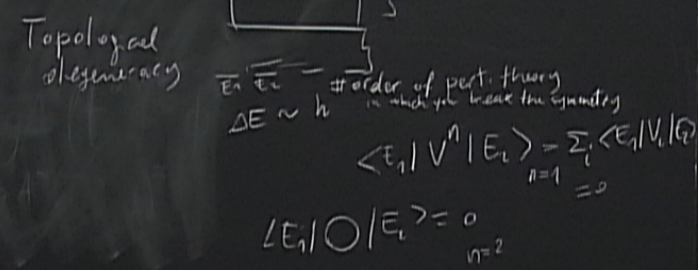 Topological
degeneracy
E₁ E₂ — # order of pert. theory
in which you break the symmetry
ΔE ~ h
<E₁| Vⁿ |E₂> = Σᵢ <E₁|Vᵢ|E₂>
n=1
=0
<E₁| O |E₂> = 0
n=2